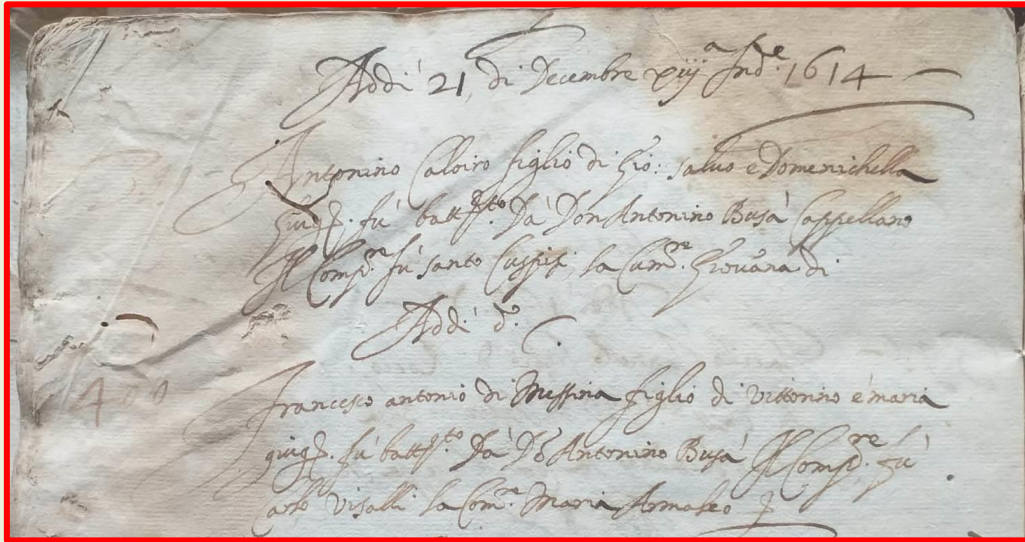 Addi 21 di Decembre xiij.a Ind.e 1614
Antonino Caloiro figlio di Gio: Saluo e Domenichella
giug. fu batt.to Da Don Antonino Busà Cappellano
Il Comp.re fù Santo la Com.re Giouana di
Add. d.o
Francesco antonio di Messina figlio di Vittorino è maria
giug. fù batt.to Da Dō Antonino Busà Il Comp.re fù
Visalli la Com.re Maria